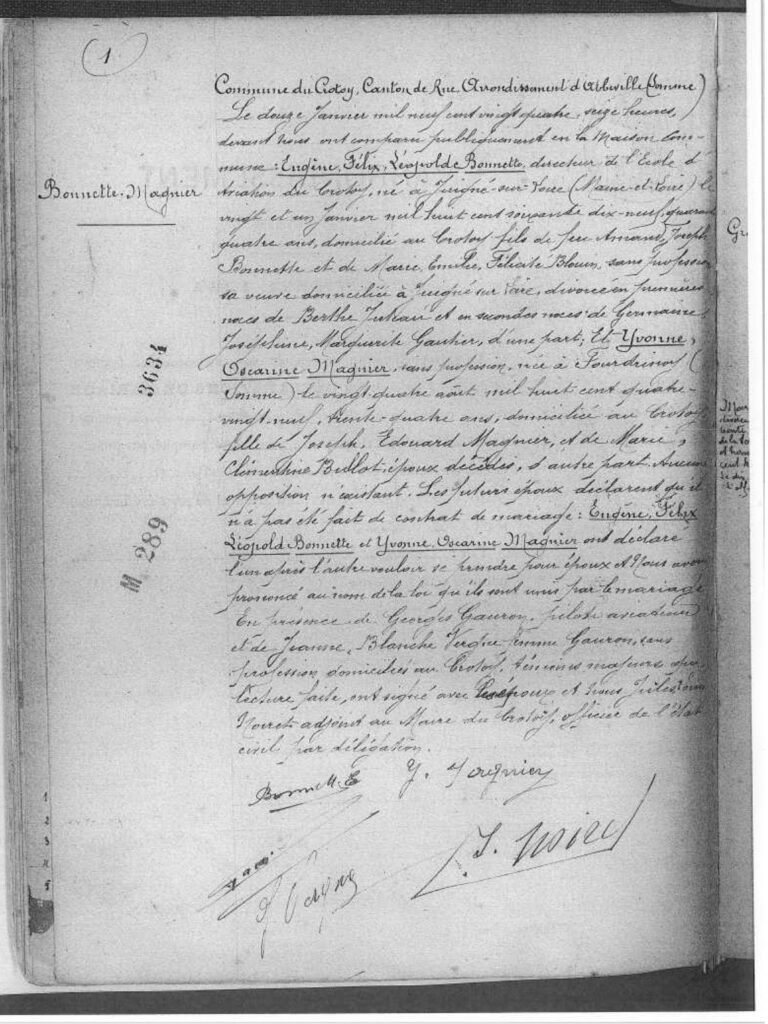 1
Commune du Crotoy, Canton de Rue Arrondissement d'Abbeville (Somme)
Le douze Janvier mil neuf cent vingt quatre, seize heures,
devant nous ont comparu publiquement en la Maison Com-
mune : Eugène, Félix, Léopold Bonnette, directeur de l'Ecole d'
Bonnette-Magnier
Aviation du Crotoy, né à Juigné-sur-Loire (Maine-et-Loire) le
vingt et un Janvier mil huit cent soixante dix-neuf, quarante
quatre ans, domicilié au Crotoy fils de feu Amand, Joseph
Bonnette et de Marie, Emilie, Félicité Blouin, sans profession
sa veuve domiciliée à Juigné sur Loire, divorcé en premières
noces de Berthe et en secondes noces de Germaine
Joséphine, Marguerite Gautier, d'une part; Et Yvonne,
Oscarine Magnier, sans profession, née à Fourdrinoy (
Somme) le vingt-quatre août mil huit cent quatre-
vingt-neuf, trente-quatre ans, domiciliée au Crotoy
fille de Joseph, Edouard Magnier, et de Marie,
Clémentine Bullot, époux décédés, d'autre part. Aucune
opposition n'existant. Les futurs époux déclarent qu'il
n'a pas été fait de contrat de mariage : Eugène, Félix
Léopold Bonnette et Yvonne, Oscarine Magnier ont déclaré
l'un après l'autre vouloir se prendre pour époux et Nous avons
prononcé au nom de la loi qu'ils sont unis par le mariage
En présence de Georges Gauron, pilote aviateur
et de Jeanne, Blanche Vergne femme Gauron, sans
profession domiciliés au Crotoy, témoins majeurs qui
lecture faite, ont signé avec les époux et Nous Jules
Noiret adjoint au Maire du Crotoy, officier de l'état
civil par délégation.
3634
M 289
Bonnette E
Y. Magnier
J. Vergne
J. Noiret
1
2
3
4
5